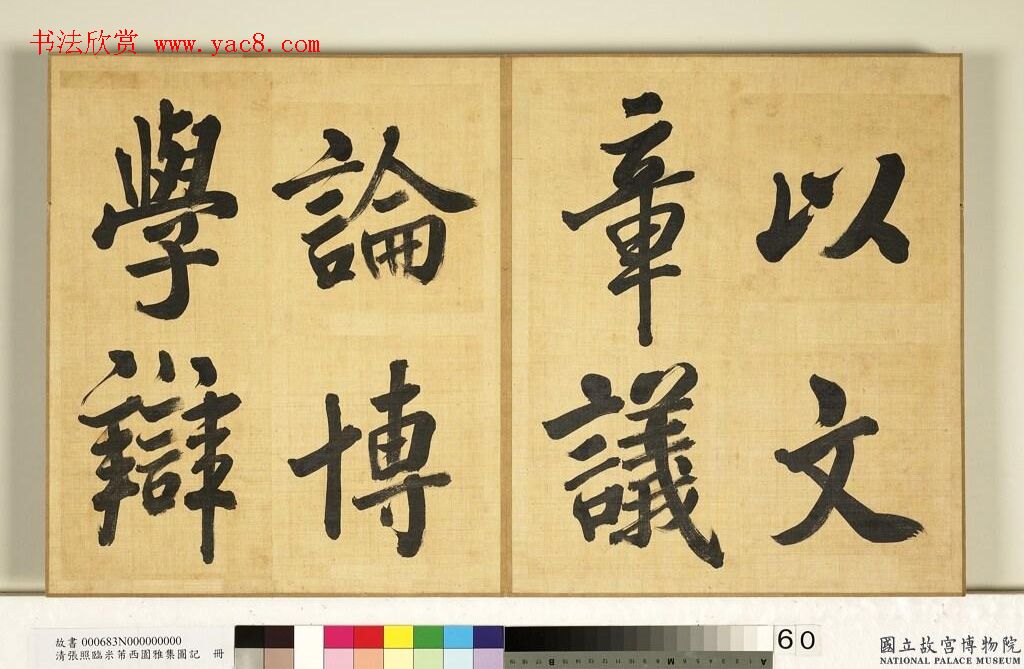 书法欣赏 www.yac8.com
以文
章議
論博
學辯
故書 000683N000000000
清張照臨米芾西園雅集圖記 冊
60
國立故宮博物院
NATIONAL PALACE MUSEUM